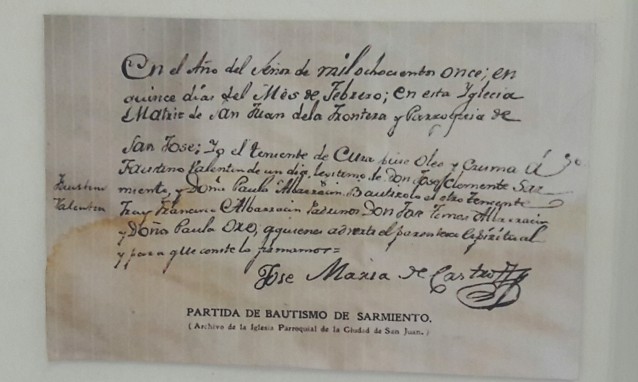 En el Año del Señor de mil ochocientos once; en
quince días del Mes de Febrero; en esta Iglesia
Matriz de San Juan de la Frontera y Parroquia de
San Jose; Yo el teniente de Cura puse Oleo y Crisma á
Faustino Valentin de un dia, legitimo de Don José Clemente Sar
miento, y Doña Paula Albarracin. Bautizolo el otro teniente
Faustino
Valentin
Fray Francisco Albarracin Padrinos Don José Tomas Albarracin
y Doña Paula Oro, a quienes advertí el parentesco Espiritual
y para que conste lo firmamos=
Jose Maria de Castro
PARTIDA DE BAUTISMO DE SARMIENTO.
(Archivo de la Iglesia Parroquial de la Ciudad de San Juan.)